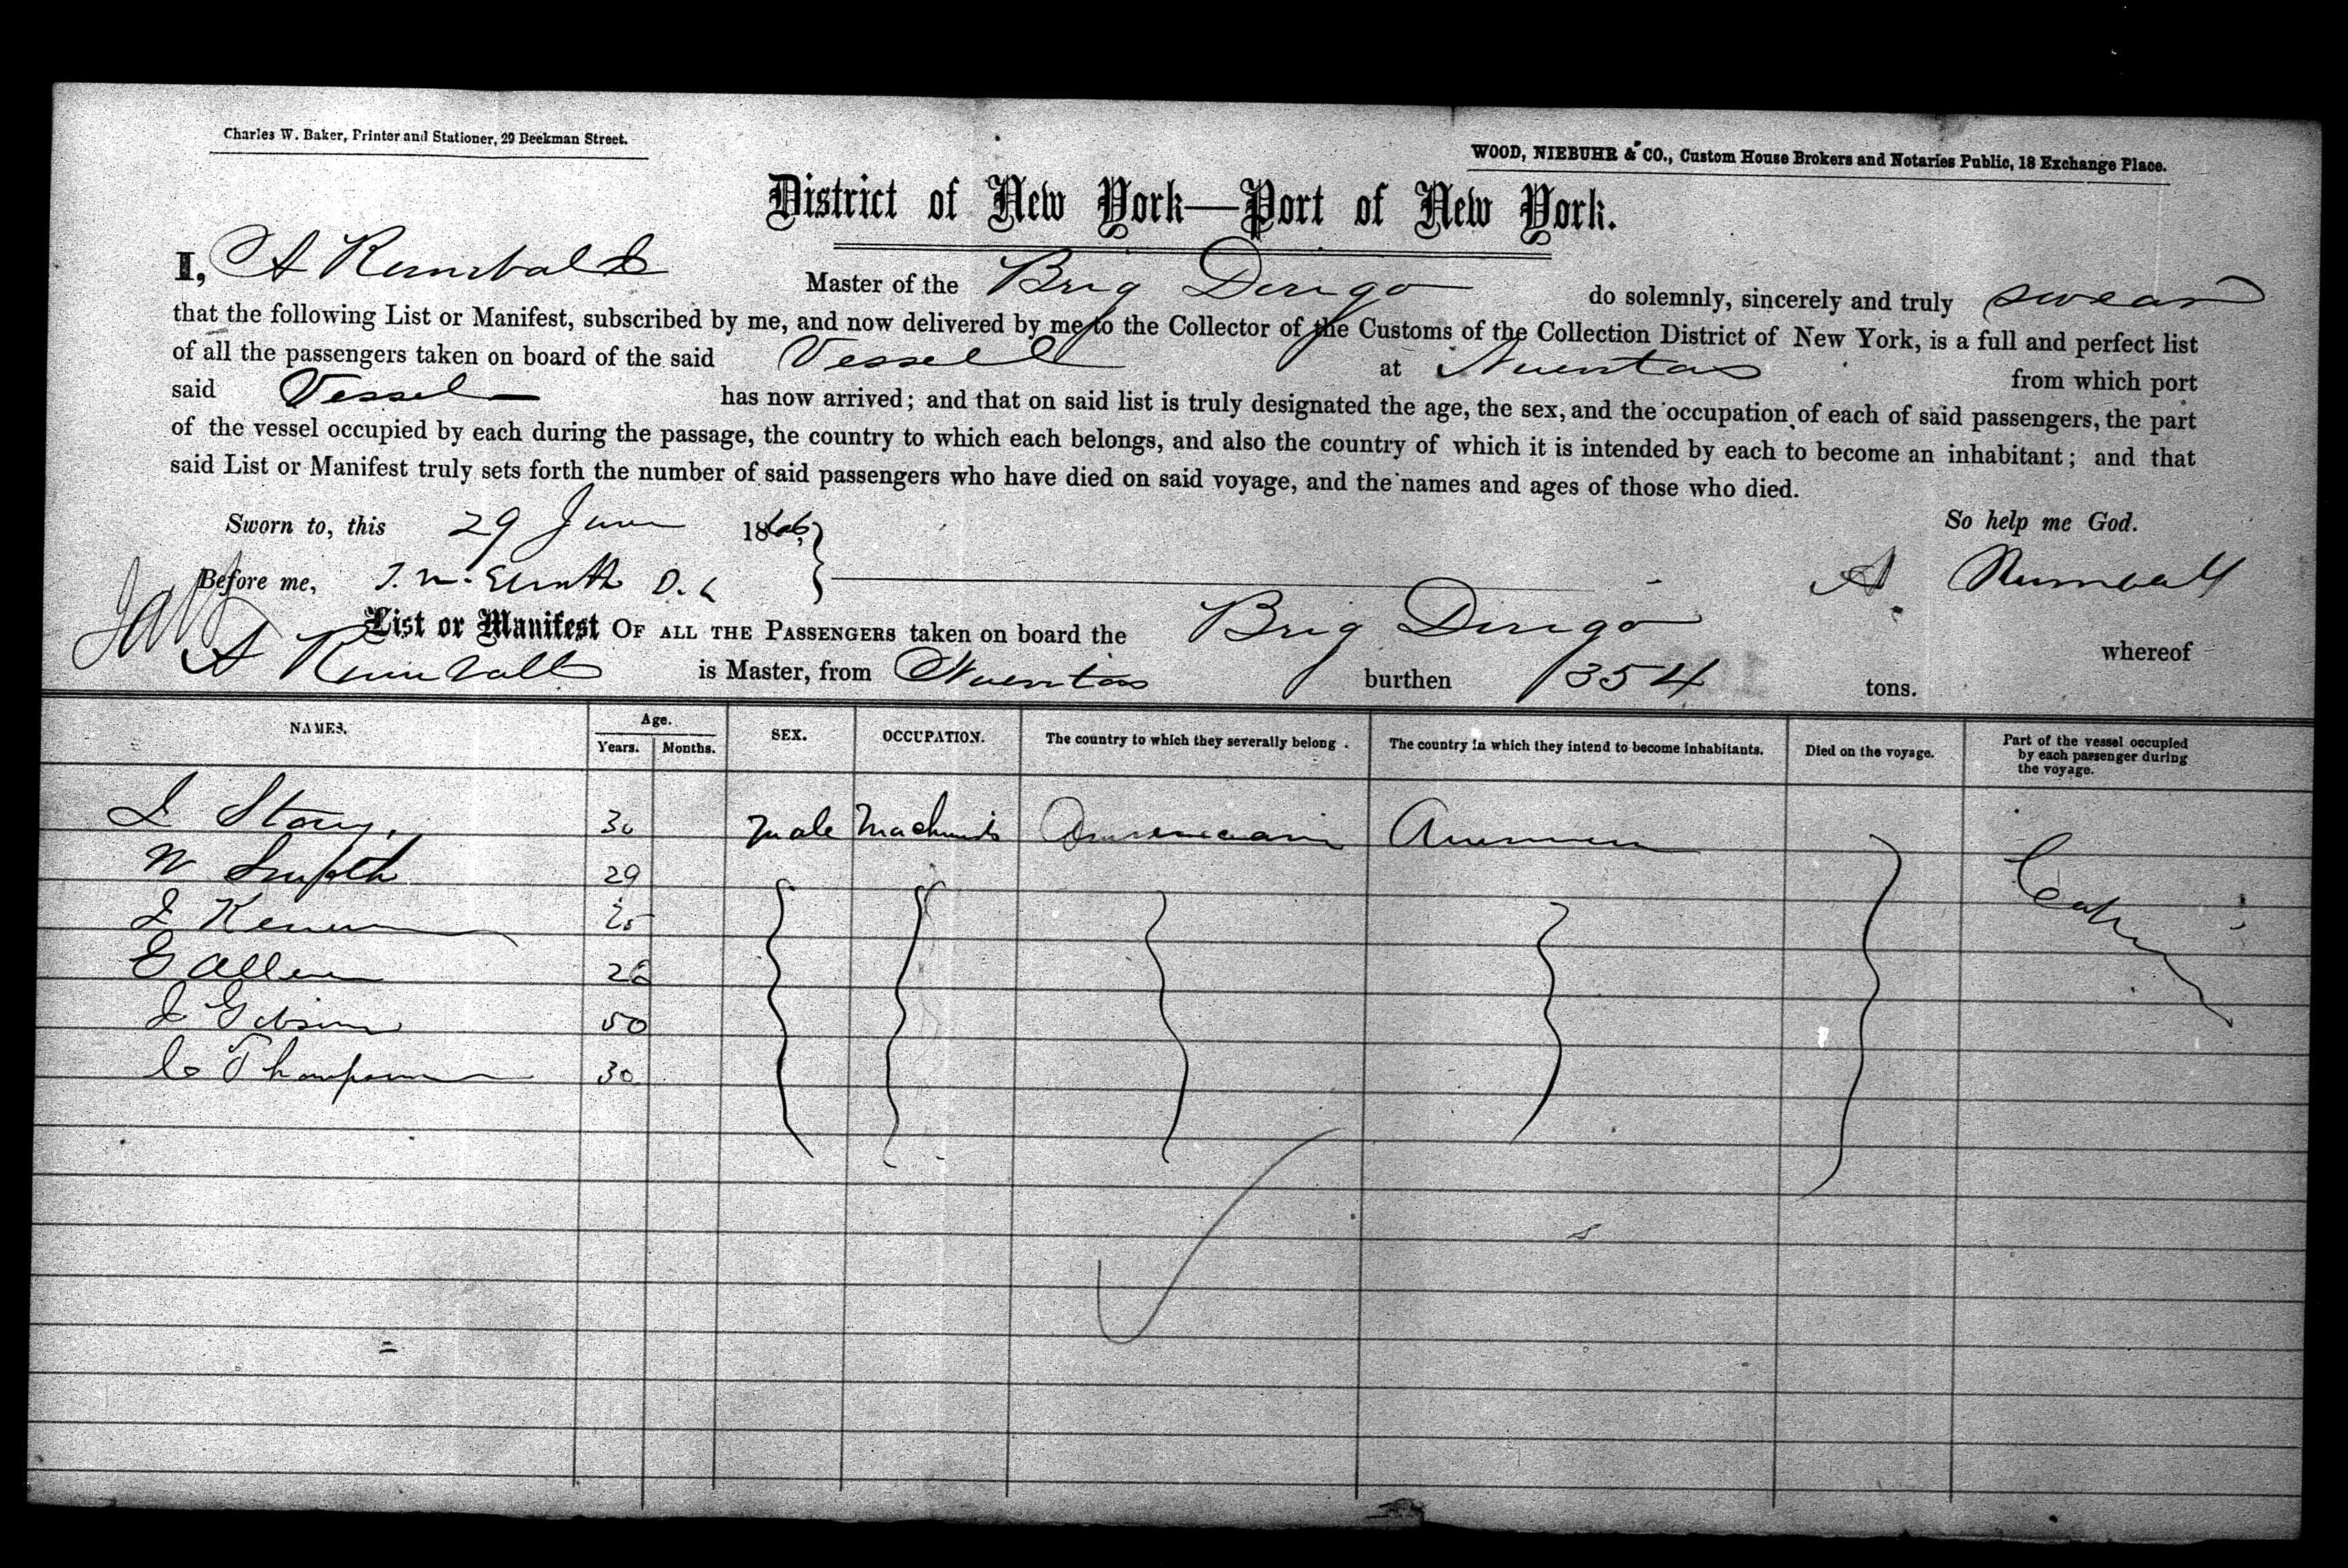 Charles W. Baker, Printer and Stationer, 29 Beekman Street.
WOOD, NIEBUHR & CO., Custom House Brokers and Notaries Public, 18 Exchange Place.
District of New York—Port of New York.
I, A Rumball Master of the Brig Dirigo do solemnly, sincerely and truly swear
that the following List or Manifest, subscribed by me, and now delivered by me to the Collector of the Customs of the Collection District of New York, is a full and perfect list
of all the passengers taken on board of the said Vessel at Nuevitas from which port
said Vessel has now arrived; and that on said list is truly designated the age, the sex, and the occupation of each of said passengers, the part
of the vessel occupied by each during the passage, the country to which each belongs, and also the country of which it is intended by each to become an inhabitant; and that
said List or Manifest truly sets forth the number of said passengers who have died on said voyage, and the names and ages of those who died.
So help me God.
Sworn to, this 29 June 1866
Before me, D. C A. Rumball
List or Manifest OF ALL THE PASSENGERS taken on board the Brig Dirigo whereof
A Rumball is Master, from Nuevitas burthen 354 tons.
NAMES. Age. Years. Months. SEX. OCCUPATION. The country to which they severally belong. The country in which they intend to become inhabitants. Died on the voyage. Part of the vessel occupied by each passenger during the voyage.
Story 30 male Machinist American American Cabin
W 29
25
G Allen 26
J Gibson 50
C Thompson 30